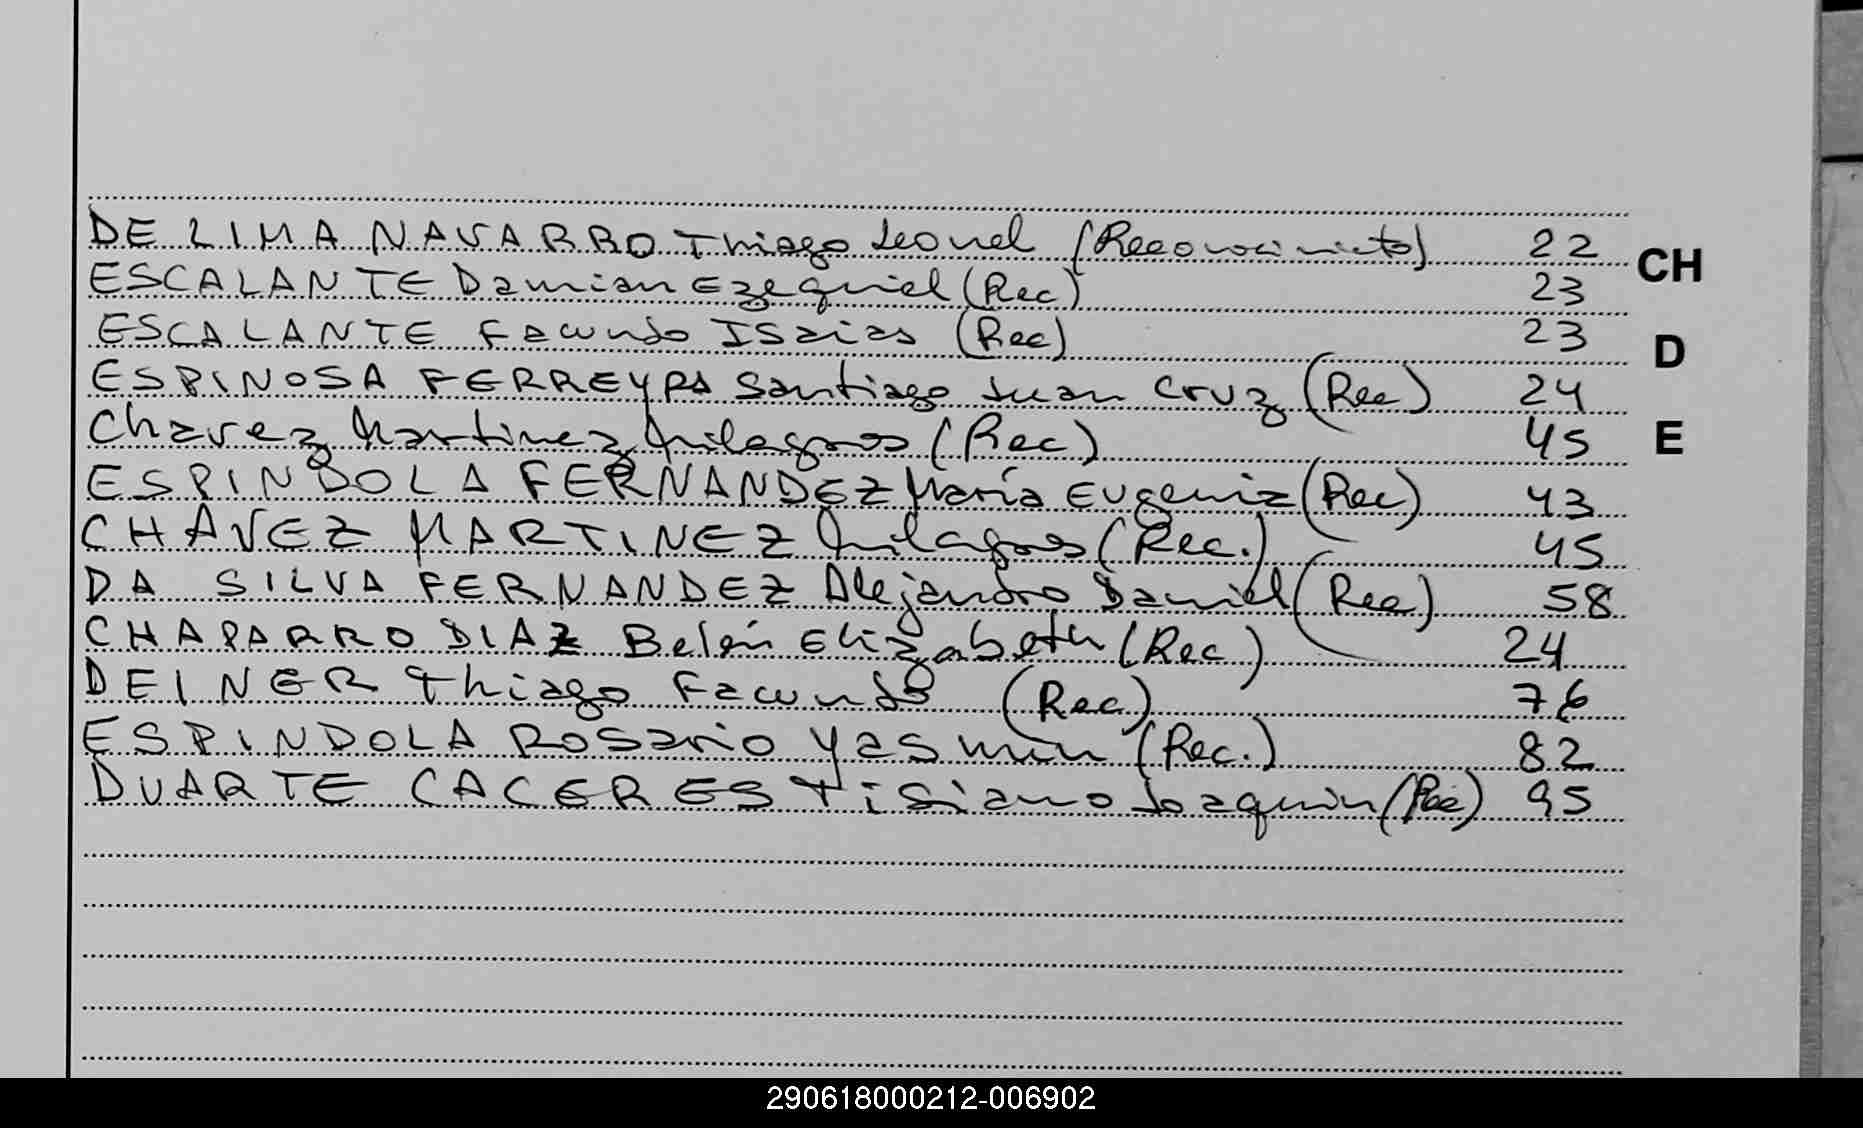 DE LIMA NAVARRO Thiago Leonel (Reconocimiento) 22
CH
ESCALANTE Damian Ezequiel (Rec) 23
ESCALANTE Facundo Isaias (Rec) 23
D
ESPINOSA FERREYRA Santiago Juan Cruz (Rec) 24
Chavez Martinez Milagros (Rec) 45
E
ESPINDOLA FERNANDEZ María Eugenia (Rec) 43
CHAVEZ MARTINEZ Milagros (Rec.) 45
DA SILVA FERNANDEZ Alejandro Daniel (Rec) 58
CHAPARRO DIAZ Belén Elizabeth (Rec) 24
DEINER Thiago Facundo (Rec) 76
ESPINDOLA Rosario Yasmin (Rec.) 82
DUARTE CACERES Tisiano Joaquin (Rec) 95
290618000212-006902